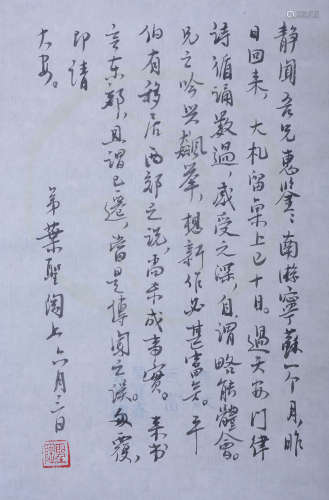 静闻吾兄惠鉴：南游宁苏一个月，昨
日回来，大札留桌上已十日。过天安门律
诗循诵数过，感受之深，自谓略能体会。
兄之吟兴飙举，想新作必甚富矣。平
伯有移居西郊之说，尚未成事实。来书
言东郊，且谓已迁，当是传闻之误。匆覆，
即请
大安。
弟叶圣陶上 六月三日